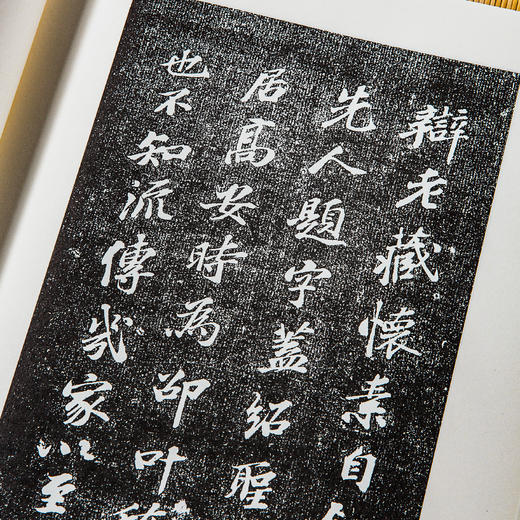 辯老藏懷素自
先人題字蓋紹聖
居高安時為邵叶
也不知流傳幾家以至